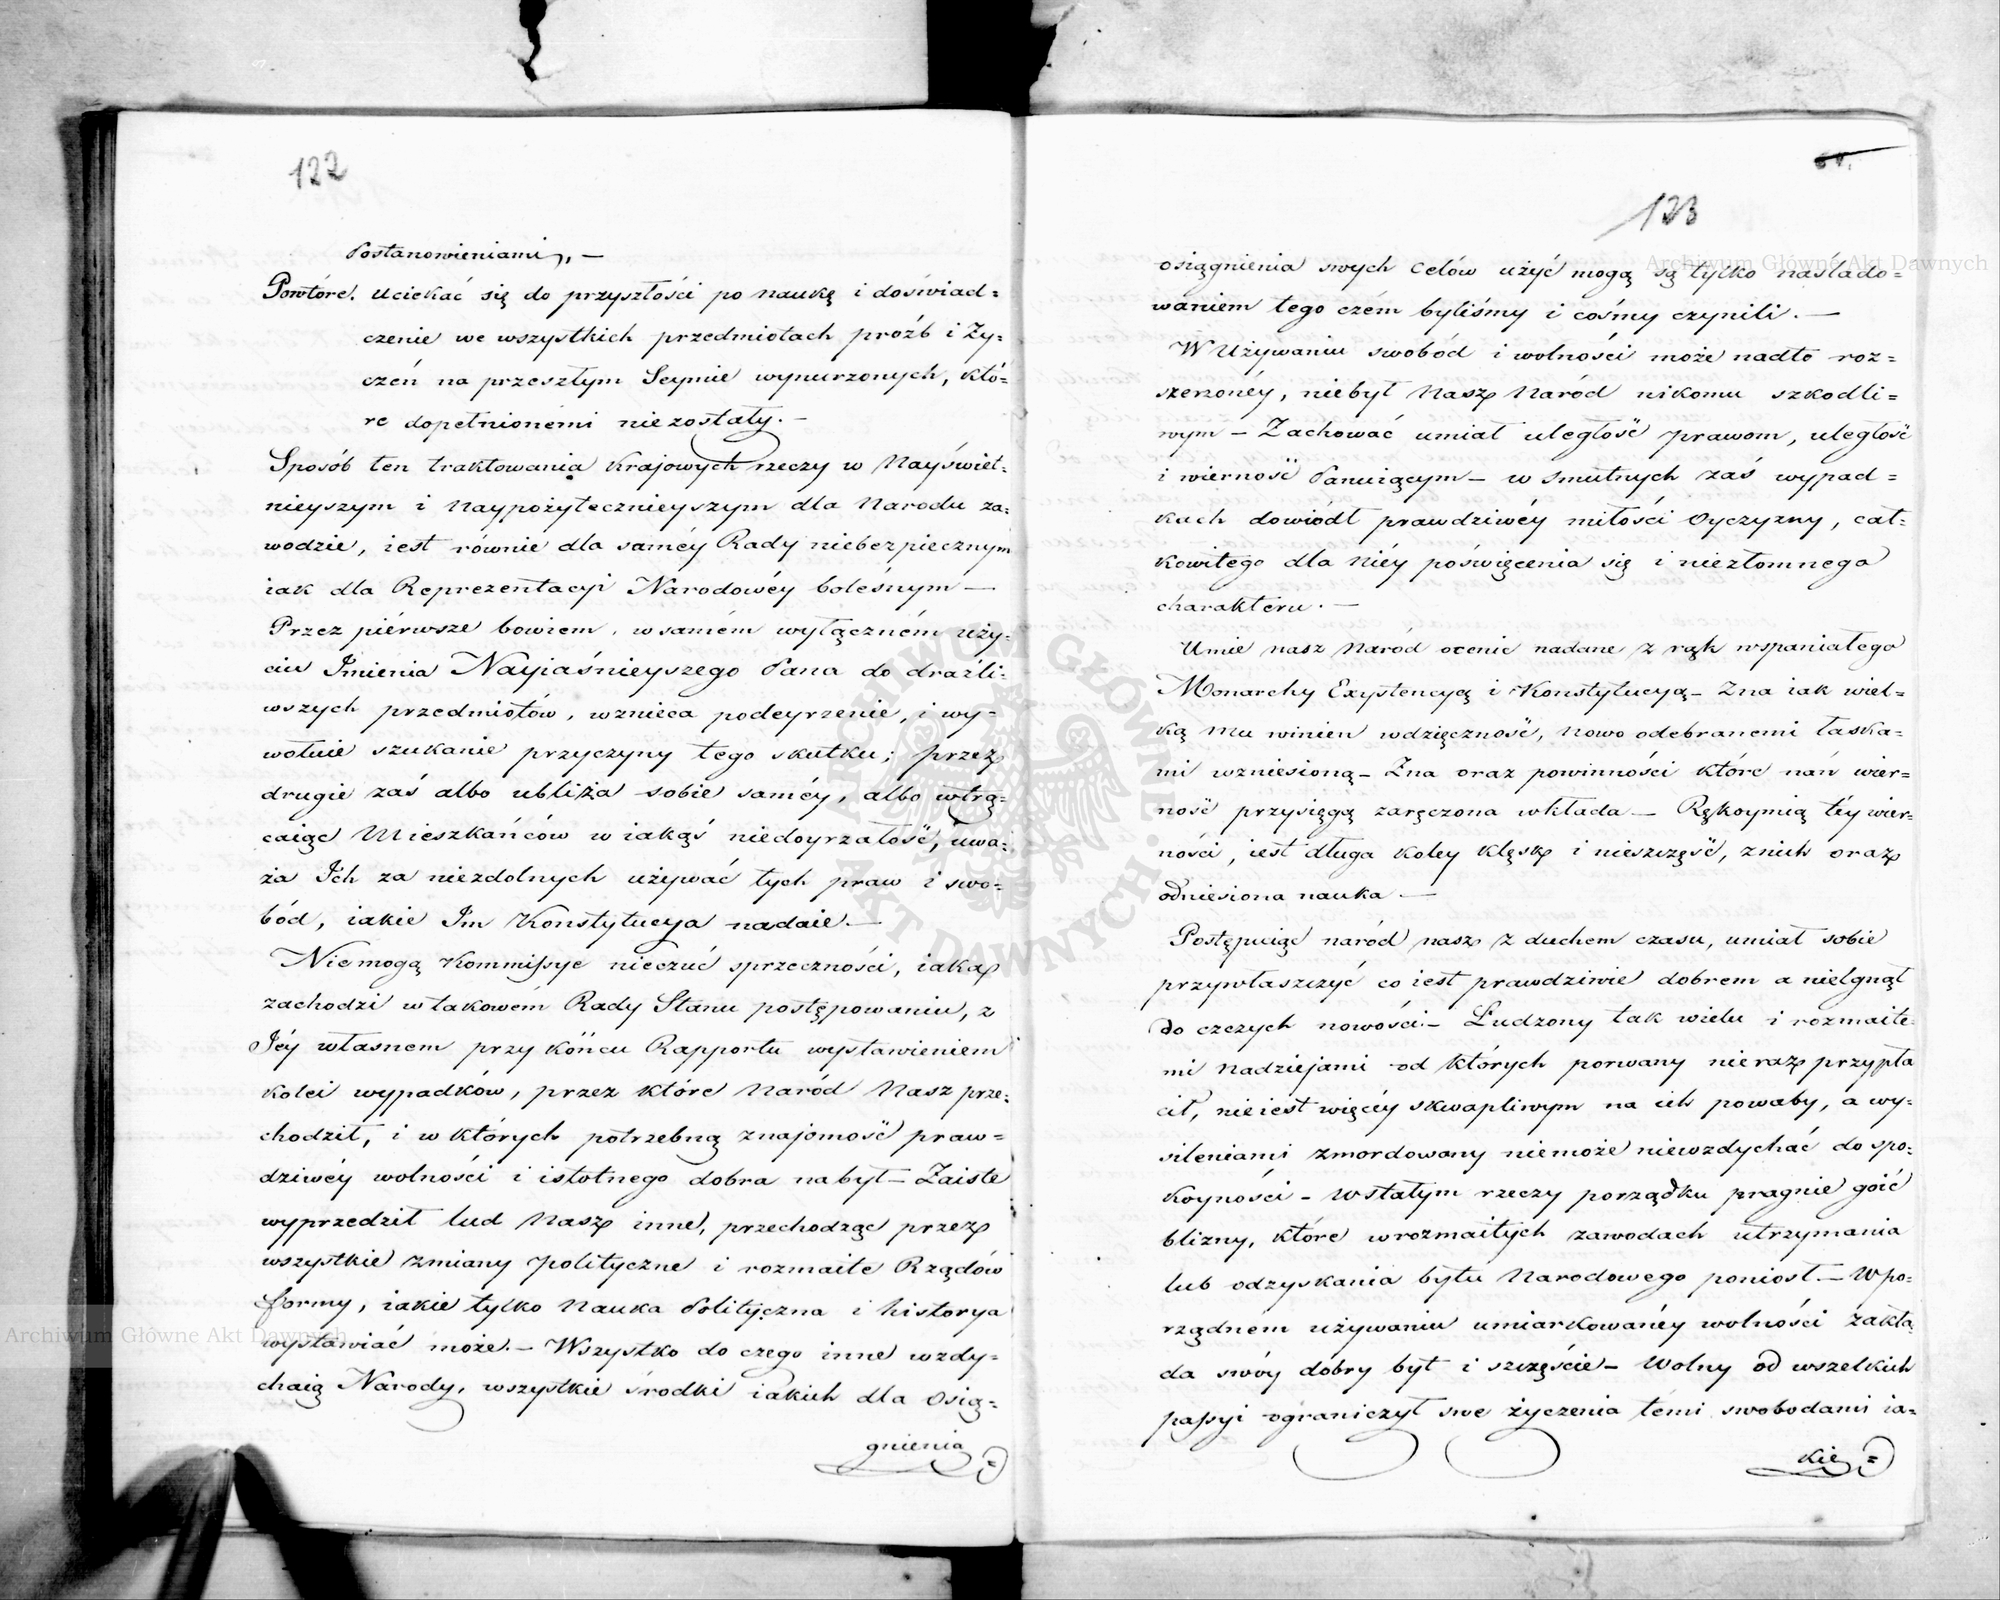 122
Postanowieniami,, —
Powtóre. Uciekać się do przyszłości po naukę i doświad=
czenie we wszystkich przedmiotach próźb i Zy=
czeń na przeszłym Seymie wynurzonych, któ=
re dopełnionemi niezostały. —
Sposób ten traktowania Krajowych rzeczy w Nayświet=
nieyszym i Naypożytecznieyszym dla Narodu za=
wodzie, iest równie dla saméy Rady niebezpiecznym
iak dla Reprezentacyi Narodowéy boleśnym —
Przez piérwsze bowiem, w samém wyłączném uży=
ciu Imienia Nayiaśnieyszego Pana do draźli=
wszych przedmiotów, wznieca podeyrzenie, i wy=
wołuie szukanie przyczyny tego skutku; przez
drugie zaś albo ubliża sobie saméy, albo wtrą=
caiąc Mieszkańców w iakąś niedoyrzałość, uwa=
ża Ich za niezdolnych używać tych praw i swo=
bód, iakie Im Konstytucya nadaie. —
Nie mogą Kommissye nieczuć sprzeczności, iaka
zachodzi w takowém Rady Stanu postępowaniu, z
Jéy własnem przy końcu Rapportu wystawieniem
kolei wypadków, przez które Naród Nasz prze=
chodził, i w których potrzebną znajomość praw=
dziwéy wolności i istotnego dobra nabył — Zaiste
wyprzedził lud Nasz inne, przechodząc przez
wszystkie zmiany polityczne i rozmaite Rządów
formy, iakie tylko Nauka Polityczna i historya
wystawiać może. — Wszystko do czego inne wzdy=
chaią Narody, wszystkie środki iakich dla osią=
gnienia =
123
osiągnienia swych celów użyć mogą są tylko naślado=
waniem tego czém byliśmy i cośmy czynili. —
W Używaniu swobód i wolności może nadto roz=
szerzonéy, niebył Nasz Naród nikomu szkodli=
wym — Zachować umiał uległość prawom, uległość
i wierność Panuiącym — w smutnych zaś wypad=
kach dowiódł prawdziwéy miłości Oyczyzny, cał=
kowitego dla Niéy poświęcenia się i niezłomnego
charakteru. —
Umie nasz Naród ocenić nadane z rąk wspaniałego
Monarchy Exystencyą i Konstytucyą — Zna iak wiel=
ką Mu winien wdzięczność, nowo odebranemi łaska=
mi wzniesioną — Zna oraz powinności które nań wier=
ność przysięgą zaręczona wkłada — Rękoymią téy wier=
ności, iest długa koley klęsk i nieszczęść, znich oraz
odniesiona nauka —
Postępuiąc naród nasz z duchem czasu, umiał sobie
przywłaszczyć co iest prawdziwie dobrem a nielgnął
do czczych nowości. — Łudzony tak wielu i rozmaite=
mi nadziejami od których porwany nieraz przypła
cił, nieiest więcéy skwapliwym na ich powaby, a wy=
sileniami zmordowany niemoże niewzdychać do spo=
koyności — w stałym rzeczy porządku pragnie goić
blizny, które w rozmaitych zawodach utrzymania
lub odzyskania bytu Narodowego poniosł. — W po=
rządnem używaniu umiarkowanéy wolności zakła
da swóy dobry byt i szczęście — Wolny od wszelkich
passyi ograniczył swe życzenia témi swobodami ia=
kie =
Archiwum Główne Akt Dawnych
Archiwum Główne Akt Dawnych
ARCHIWUM GŁÓWNE AKT DAWNYCH